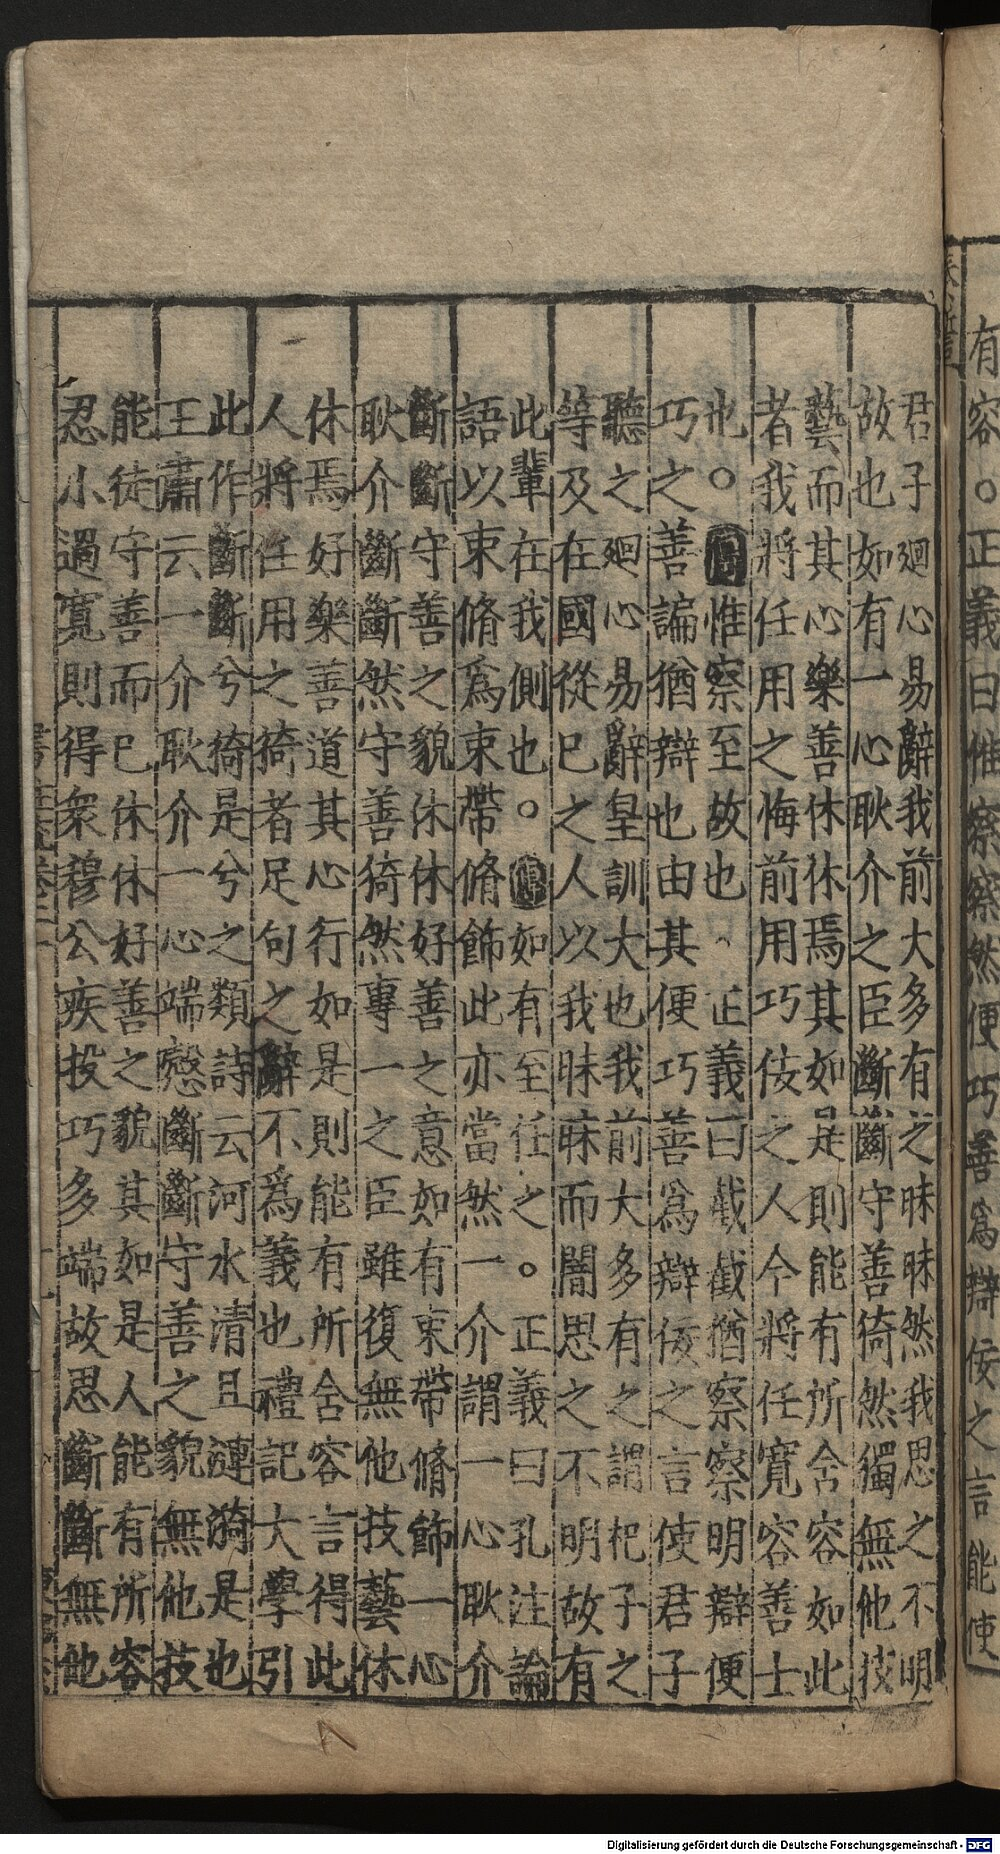 有容。正義曰惟察察然便巧善爲辯佞之言能使
君子廻心易辭我前大多有之昧昧然我思之不明
故也如有一心耿介之臣斷斷守善猗然獨無他技
藝而其心樂善休休焉其如是則能有所含容如此
者我將任用之悔前用巧佞之人今將任寬容善士
也。傳惟察至故也。正義曰截截猶察察明辯便
巧之善諞猶辯也由其便巧善爲辯佞之言使君子
聽之廻心易辭皇訓大也我前大多有之謂杞子之
等及在國從已之人以我昧昧而闇思之不明故有
此輩在我側也。傳如有至任之。正義曰孔注論
語以束脩爲束帶脩飾此亦當然一介謂一心耿介
斷斷守善之貌休休好善之意如有束帶脩飾一心
耿介斷斷然守善猗然專一之臣雖復無他技藝休
休焉好樂善道其心行如是則能有所含容言得此
人將任用之猗者足句之辭不爲義也禮記大學引
此作斷斷兮猗是兮之類詩云河水清且漣漪是也
王肅云一介耿介一心端愨斷斷守善之貌無他技
能徒守善而已休休好善之貌其如是人能有所容
忍小過寬則得衆穆公疾投巧多端故思斷斷無他
Digitalisierung gefördert durch die Deutsche Forschungsgemeinschaft - DFG